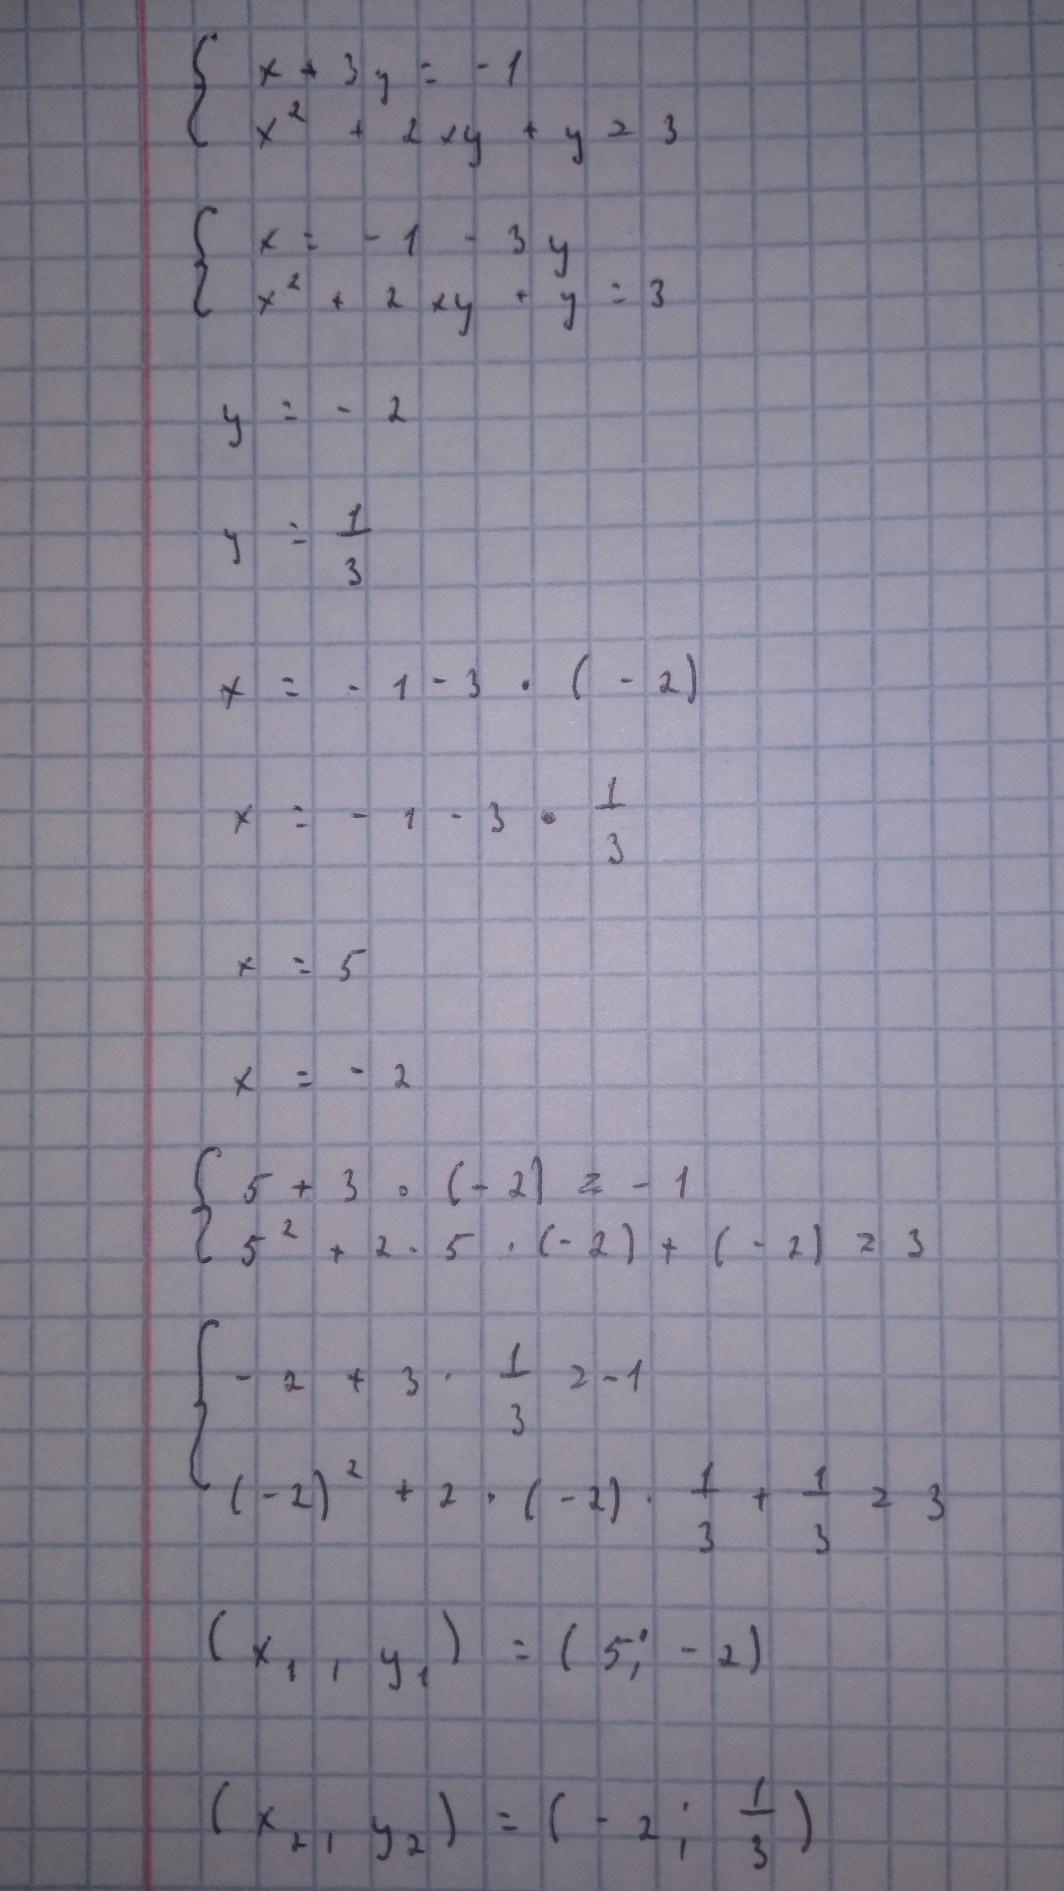 x + 3y = -1
x² + 2xy + y = 3
x = -1 - 3y
x² + 2xy + y = 3
y = -2
y = 1/3
x = -1 - 3 · (-2)
x = -1 - 3 · 1/3
x = 5
x = -2
5 + 3 · (-2) = -1
5² + 2 · 5 · (-2) + (-2) = 3
-2 + 3 · 1/3 = -1
(-2)² + 2 · (-2) · 1/3 + 1/3 = 3
(x₁, y₁) = (5; -2)
(x₂, y₂) = (-2; 1/3)